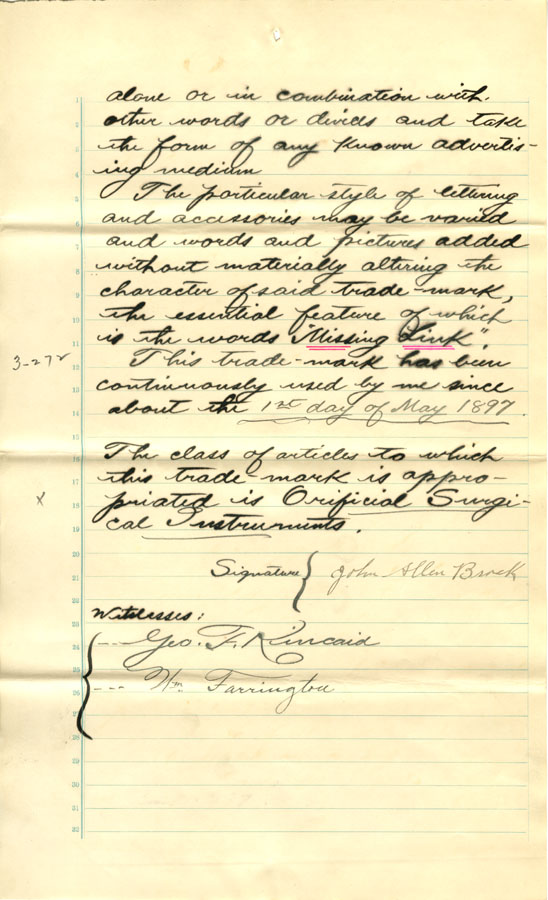 alone or in combination with
other words or divices and take
the form of any known advertis-
ing medium
The particular style of lettering
and accessories may be varied
and words and pictures added
without materially altering the
character of said trade-mark,
the essential feature of which
is the words "Missing Link".
3-272
This trade-mark has been
continuously used by me since
about the 1st day of May 1897.
The class of articles to which
this trade-mark is appro-
x
priated is Orificial Surgi-
cal Instruments.
Signature { John Allen Brock
Witnesses:
Geo. F. Kincaid
Wm Farrington